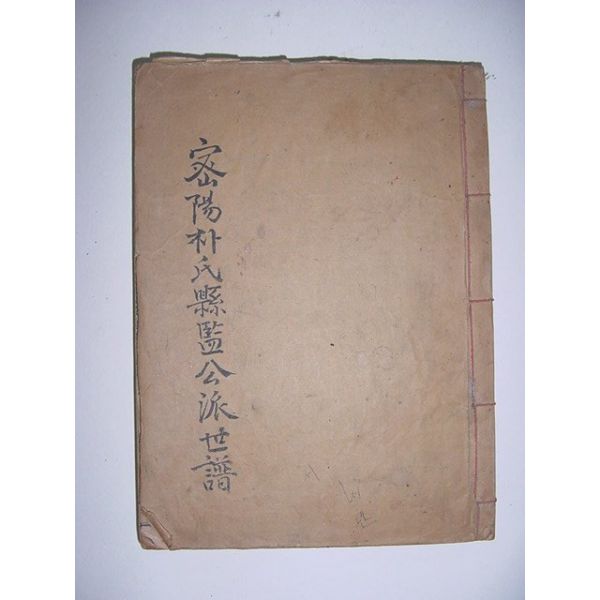 密陽朴氏縣監公派世譜